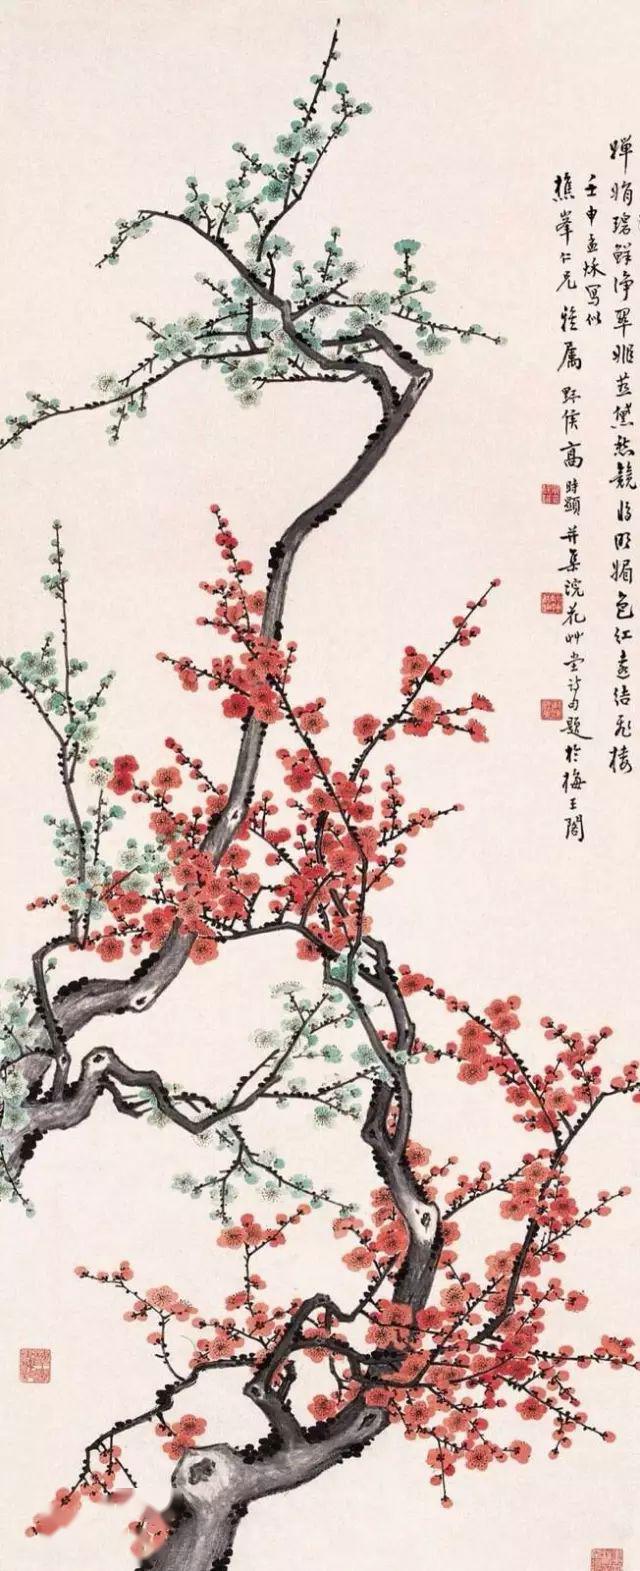 嬋娟碧鮮淨翠姬燕黛愁競將明媚色紅遠結飛樓
壬申孟秋寫似
樵峯仁兄雅屬 野侯高時顯并集浣花艸堂詩句題於梅王閣